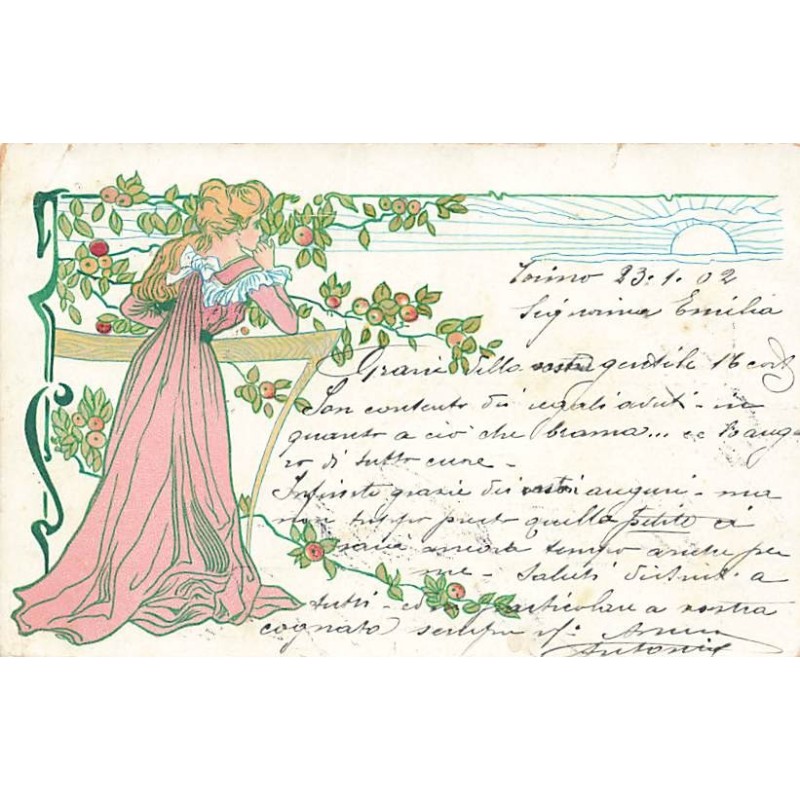 Torino 23.1.02
Signorina Emilia
Grazie della vostra gentile 16 cord
Son contento dei regali avuti - in
quanto a ciò che brama... ve l'augu
ro di tutto cuore -
Infinite grazie dei vostri auguri - ma
non troppo presto quella petite ci
sarà ancora tempo anche per
me - Saluti distinti a
tutti - con particolare a vostro
cognato sempre
Antonio